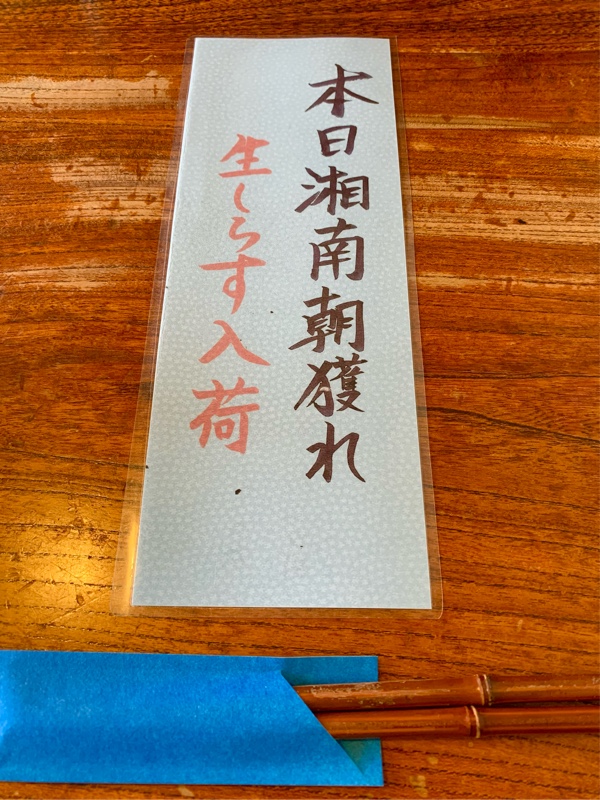 本日湘南朝獲れ
生しらす入荷